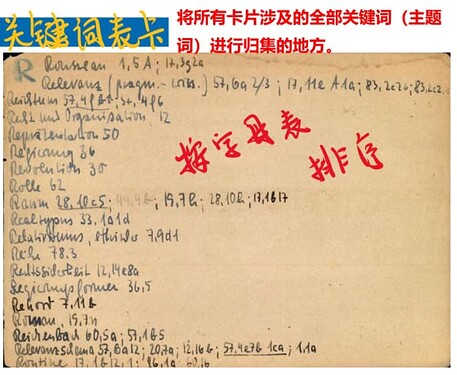 关键词表卡
将所有卡片涉及的全部关键词（主题
词）进行归集的地方。
R Rousseau 1,5A ; 17,3g2a
Relevanz (pragm.- 57,6a 2/3 ; 17,11e A1a ; 83,2c2b ; 83,2c2
Reichtum 57,4f6
Recht und Organisation 12
Repräsentation 50
Regierung 36
Revolution 30
Rolle 62
Raum 28,10c5 ; 19,7h ; 28,10h ; 17,1b17
Realtypus 33,1a1d
Relativismus, ethischer 7,9d1
Reihe 78.3
Rechtssicherheit 12,14e8a
Regierungsformen 36,5
Rekort 7,11b
Roman 19,7n
Reichenbach 60,5a ; 57,1b5
Relevanzschema 57,6a12 ; 20,7a ; 12,16b ; 57,4e7b 1ca ; 1,1a
Routine 17,1b12,1 ; 96,1a
按字母表
排序